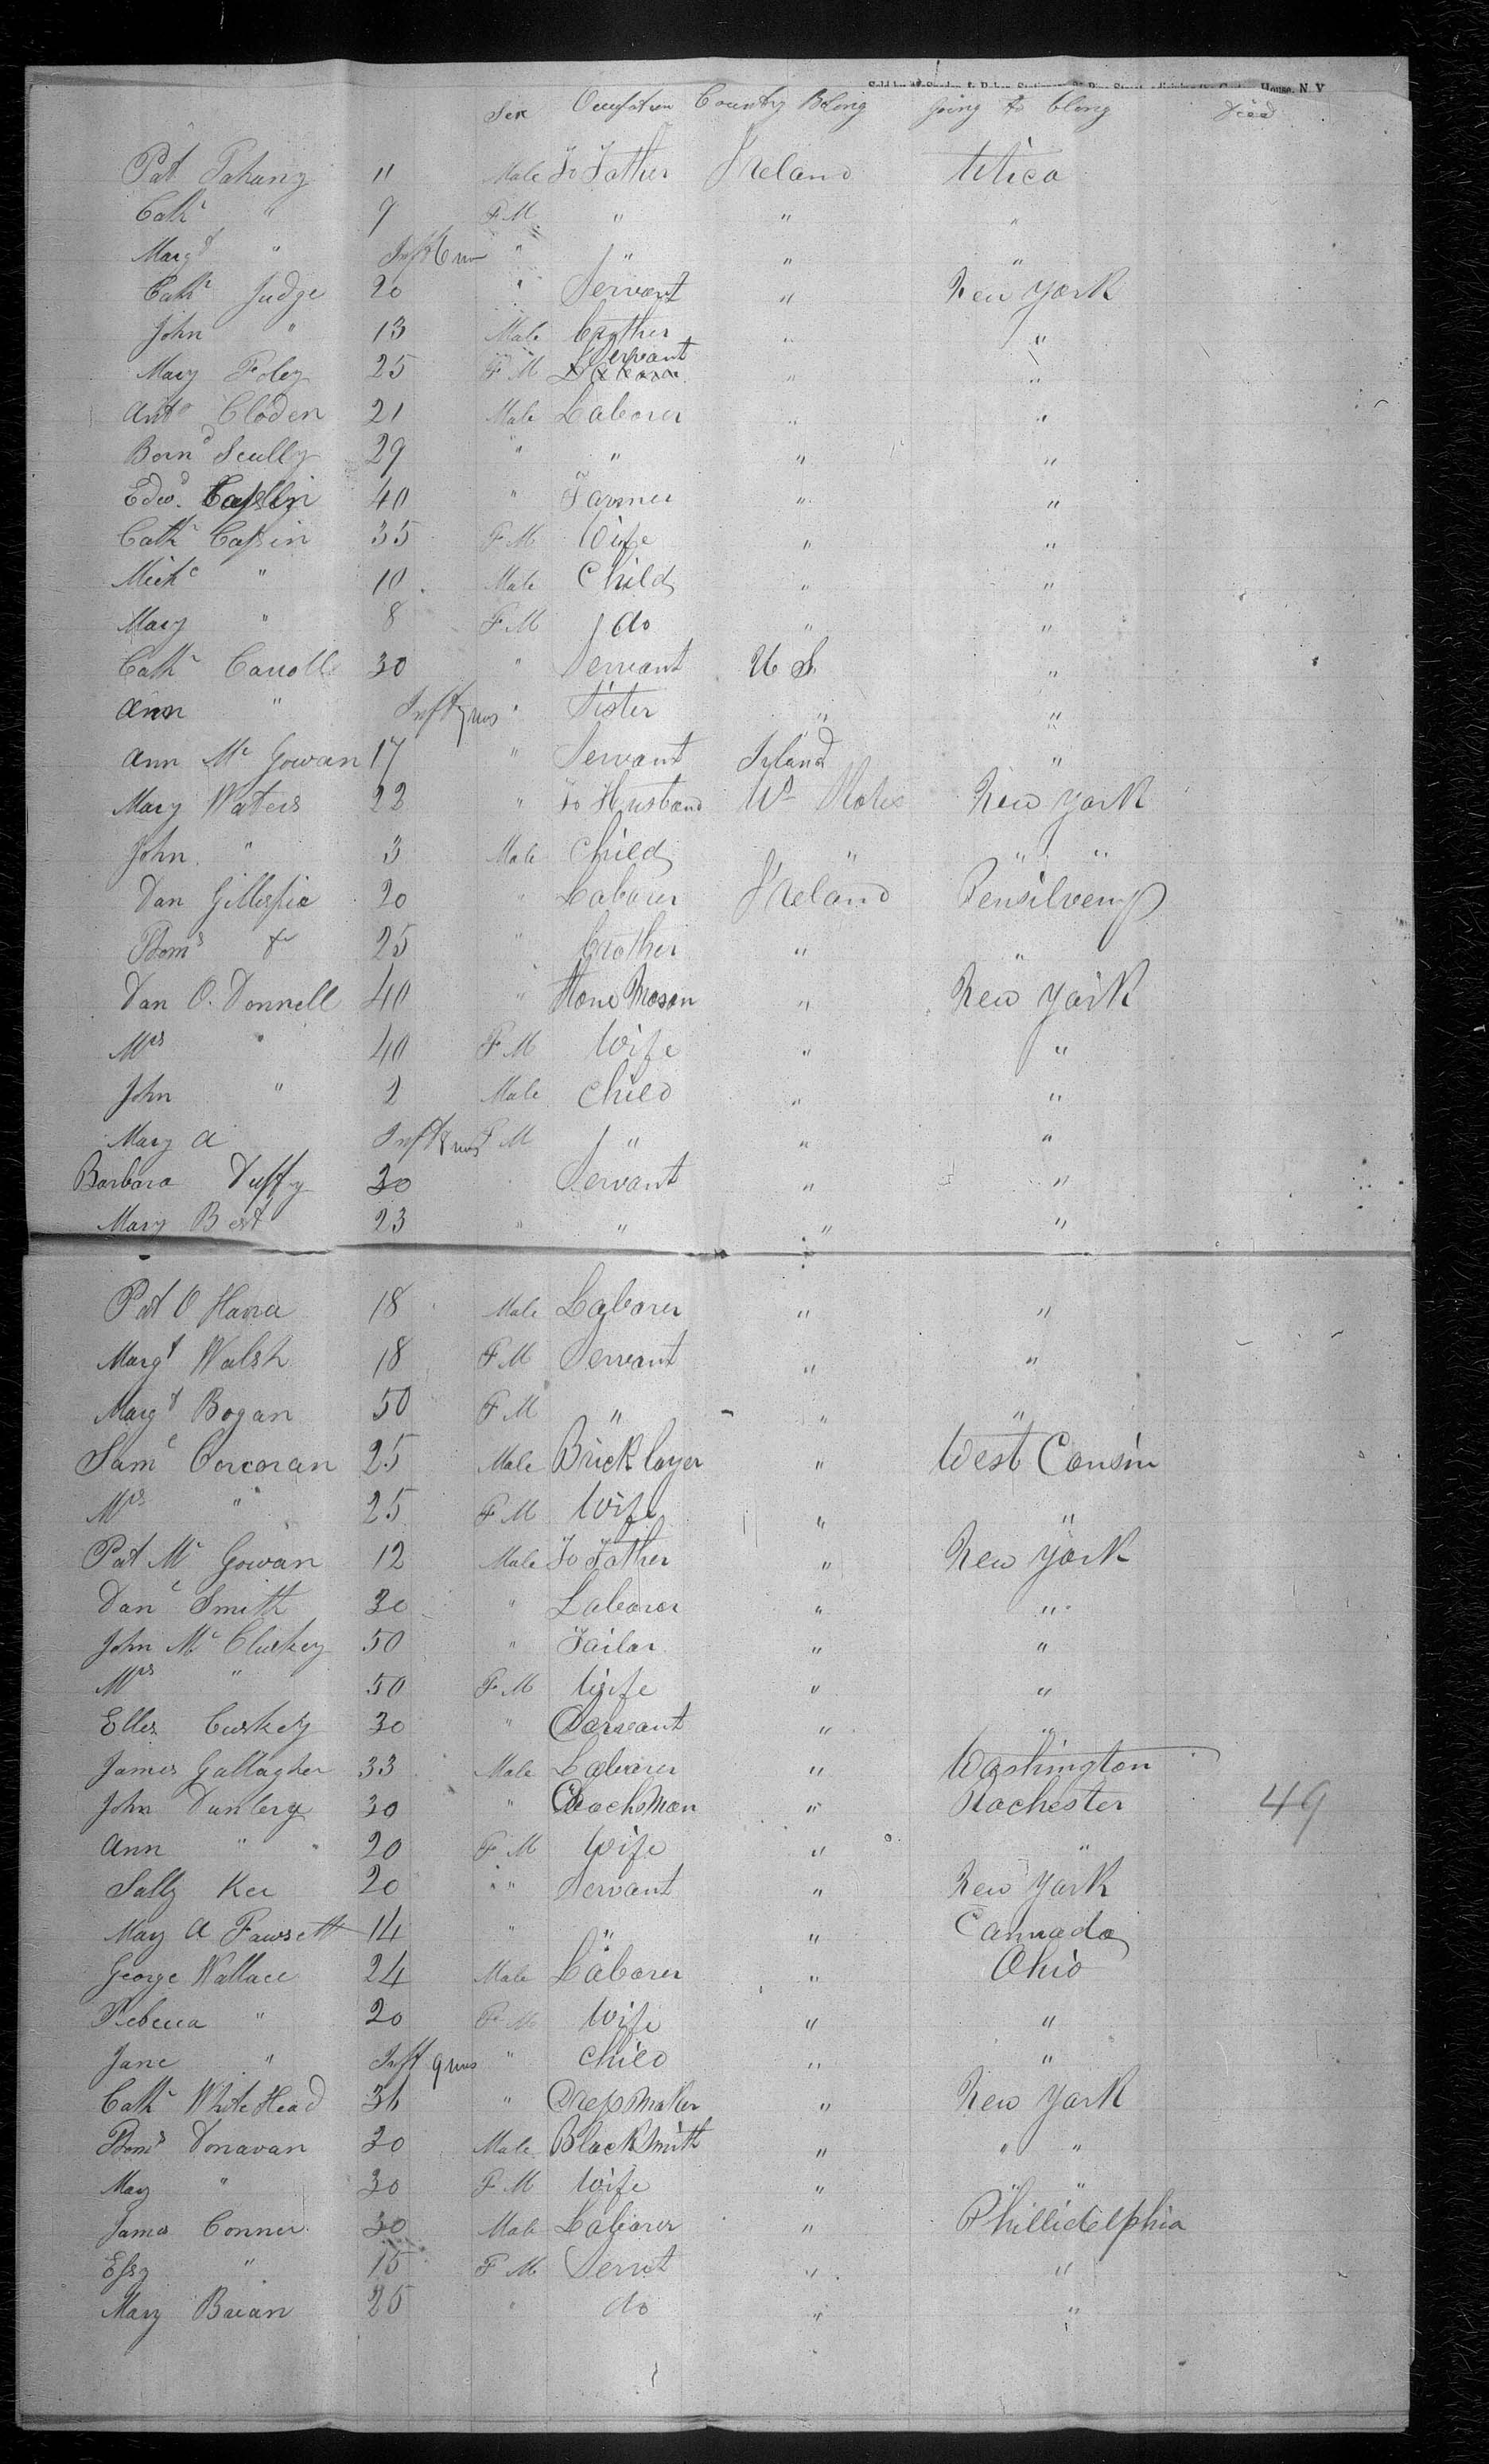 House, N.Y
Sex Occupation Country Belong going to belong Died
Pat Fahany 11 Male To Father Ireland Utica
Cath " 9 FM " " "
Margt " Inft 6 ms " " " "
Cath Judge 20 " Servant " New York
John " 13 Male brother " "
Mary Foley 25 FM Servant " "
Anto Cloden 21 Male Laborer " "
Bernd Scully 29 " " " "
Edwd. 40 " Farmer " "
Cath Cassin 35 FM Wife " "
Miche " 10 Male Child " "
Mary " 8 FM do " "
Cath Carroll 30 " Servant U S "
Ann " Inft ms " Sister " "
Ann Mc Gowan 17 " Servant Irland "
Mary Waters 22 " To Husband New York
John " 3 Male Child " " "
Dan Gillespie 20 " Laborer Ireland Pensilveny
Thoms & 25 " brother " "
Dan O. Donnell 40 " Stone Mason " New York
Mrs " 40 FM Wife " "
John " 2 Male Child " "
Mary A Inft 8 ms FM " " "
Barbara Duffy 30 " Servant " "
Mary Best 23 " " " "
Pat O Hara 18 Male Laborer " "
Margt Walsh 18 FM Servant " "
Margt Bogan 50 FM " " "
Saml Corcoran 25 Male Brick layer " West Consin
Mrs " 25 FM Wife " "
Pat Mc Gowan 12 Male To Father " New York
Danl Smith 30 " Laborer " "
John Mc Cluskey 50 " Tailor " "
Mrs " 50 FM Wife " "
Ellen Cuskey 30 " Servant " "
James Gallagher 33 Male Laborer " Washington
John Dunlevy 30 " Coachman " Rochester 49
Ann " 20 FM Wife " "
Sally Ker 20 " " Servant " New York
May A Fawsett 14 " " " Cannada
George Wallace 24 Male Laborer " Ohio
Rebecca " 20 FM Wife " "
Jane " Inft 9 ms " Child " "
Cath White Head 36 " Drepmaker " New York
Thoms Donavan 30 Male Black Smith " " "
May " 30 FM Wife " " "
James Conner 30 Male Laborer " Phillidelphia
Essy " 15 FM Servt " "
Mary Brean 25 " do " "